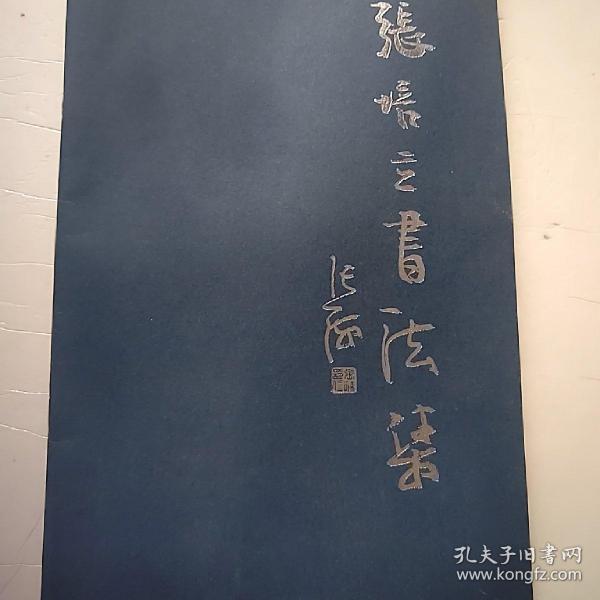 張培立書法集
張海
孔夫子旧書网
www.kongfz.com